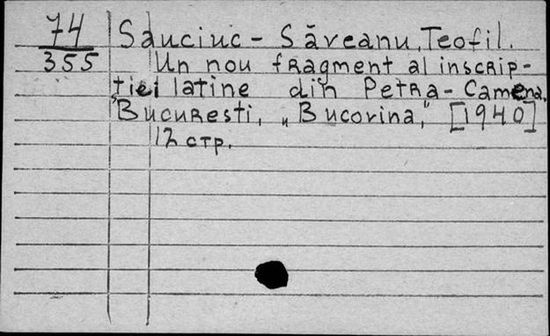 74
355
Sauciuc - Săveanu, Teofil.
Un nou fragment al inscrip-
ției latine din Petra-Camena.
București, „Bucovina," [1940]
12 стр.